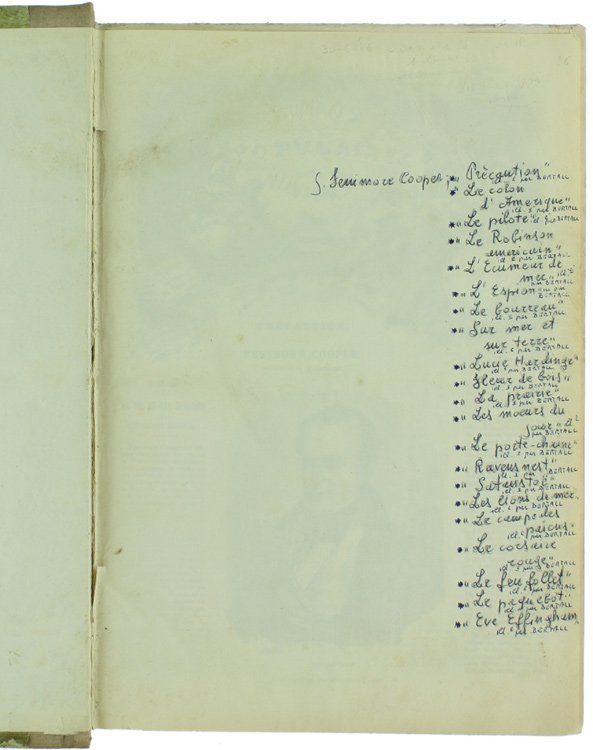 J. Fenimore Cooper: *" Précaution"
ill.é par BERTALL
*" Le colon
d'Amerique"
ill.é par BERTALL
*" Le pilote" ill.é par BERTALL
*" Le Robinson
americain"
ill.é par BERTALL
*" L'Ecumeur de
mer" ill.é
par BERTALL
*" L'Espion" ill.é par
BERTALL
*" Le bourreau"
ill.é par BERTALL
*" Sur mer et
sur terre"
ill.é par BERTALL
*" Lucie Hardinge"
ill.é par BERTALL
*" Fleur de bois"
ill.é par BERTALL
*" La prairie"
ill.é par BERTALL
*" Les moeurs du
jour" ill.é
par BERTALL
*" Le porte-chaine"
ill.é par BERTALL
*" Ravensnest"
ill.é par BERTALL
*" Satanstoe"
ill.é par BERTALL
*" Les lions de mer"
ill.é par BERTALL
*" Le camp des
païens"
ill.é par BERTALL
*" Le corsaire
rouge"
ill.é par BERTALL
*" Le feu follet"
ill.é par BERTALL
*" Le paquebot"
ill.é par BERTALL
*" Eve Effingham"
ill.é par BERTALL